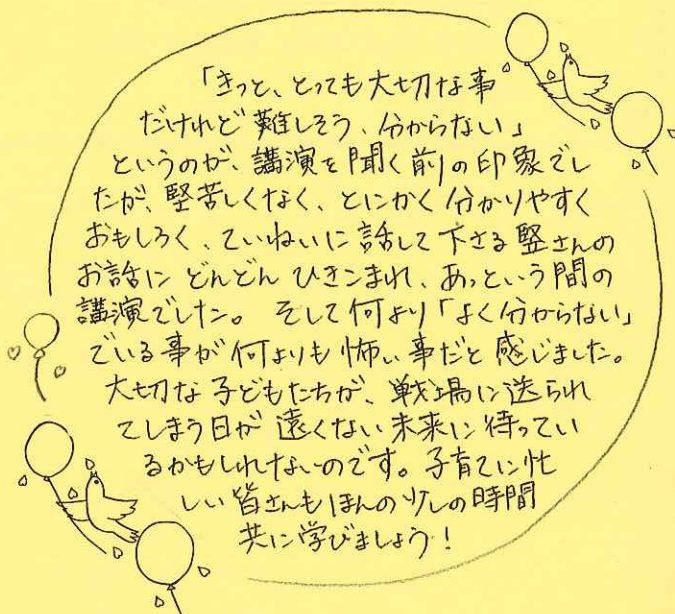 「きっと、とっても大切な事
だけれど難しそう、分からない」
というのが、講演を聞く前の印象でし
たが、堅苦しくなく、とにかく分かりやすく
おもしろく、ていねいに話して下さる竪さんの
お話にどんどんひきこまれ、あっという間の
講演でした。そして何より「よく分からない」
でいる事が何よりも怖い事だと感じました。
大切な子どもたちが、戦場に送られ
てしまう日が遠くない未来に待ってい
るかもしれないのです。子育てに忙
しい皆さんもほんの少しの時間
共に学びましょう!